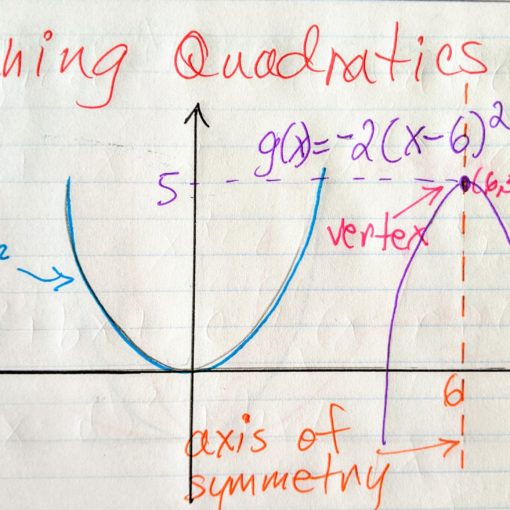 hing Quadratics
g(x)=-2(x-6)²
5
vertex
2
6
axis of
symmetry